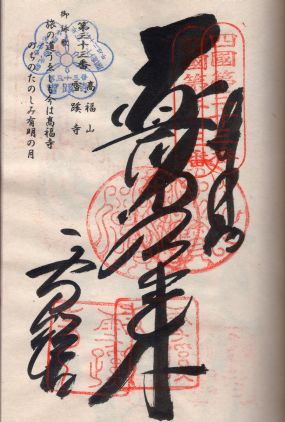 奉拝
四國第三十三番
薬師如来
雪蹊寺
第三十三番 高福山 雪蹊寺
御詠歌
旅の道うゑしも今は高福寺
のちのたのしみ有明の月